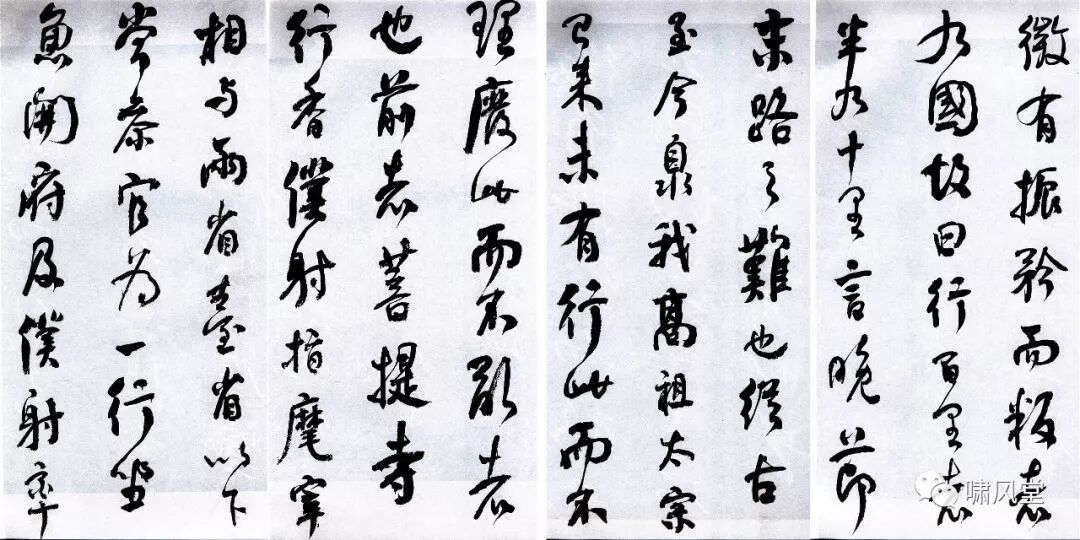 微有振矜而叛者
九國故曰行百里者
半九十里言晚節
末路之難也從古
至今臮我高祖太宗
已來未有行此而不
理廢此而不亂者
也前者菩提寺
行香僕射指麾宰
相与兩省臺省以下
常參官為一行坐
魚開府及僕射率
啸风堂